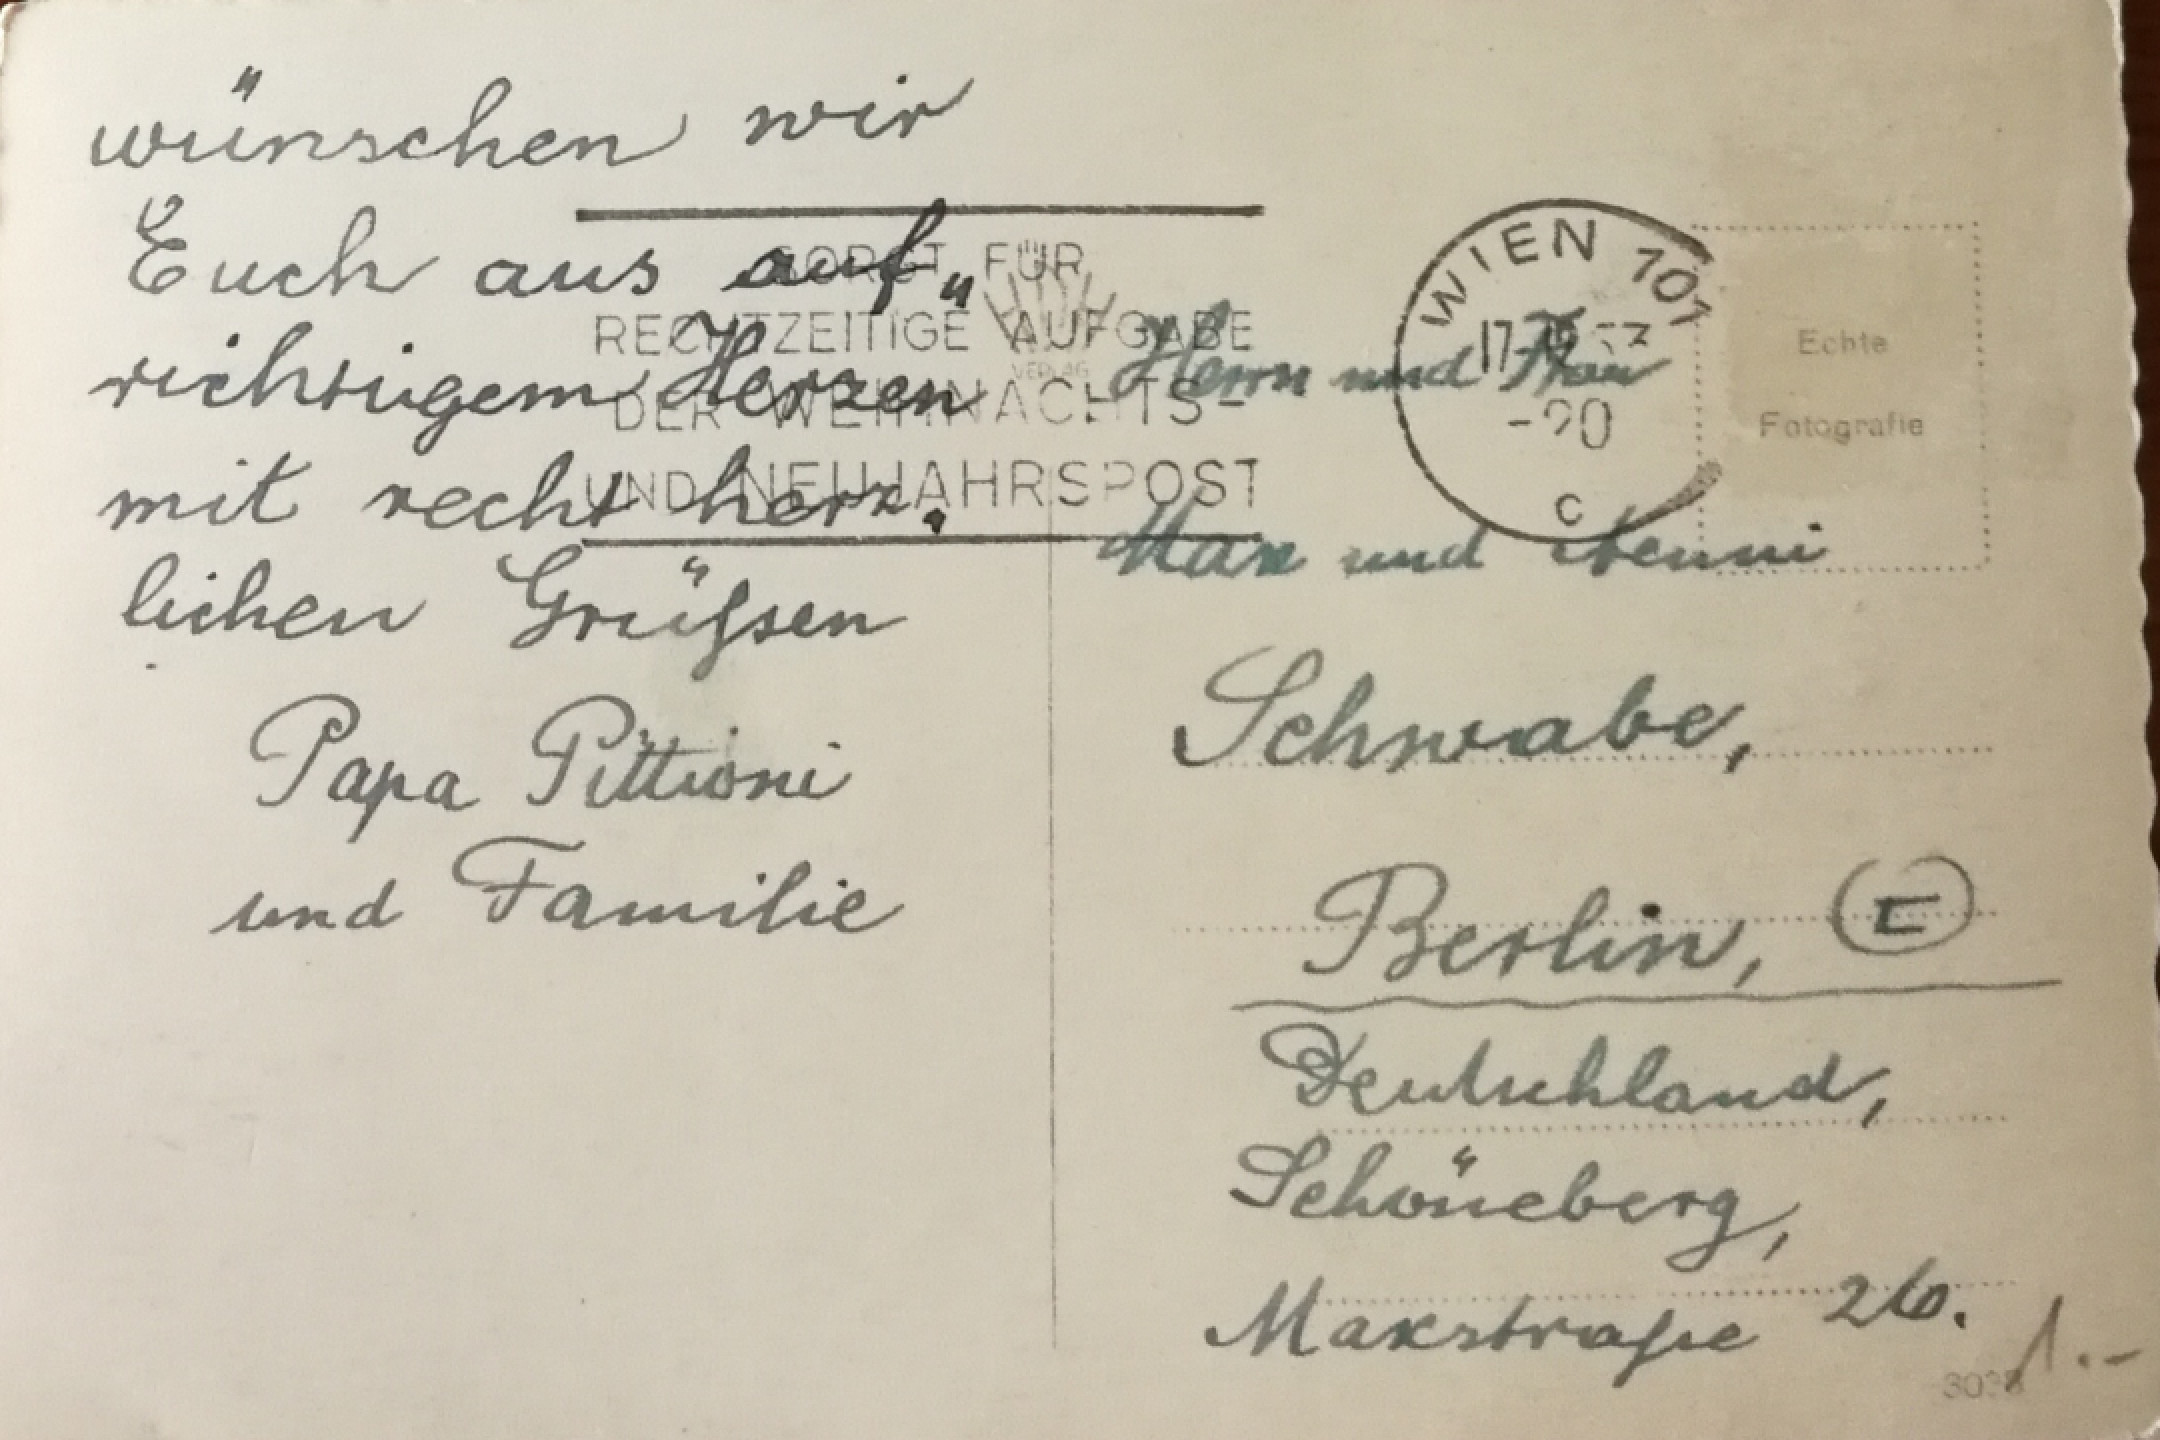 wünschen wir
Euch aus auf„
richtigem Herzen
mit recht herz.
lichen Grüßsen
Papa Pittioni
und Familie
SORGT FÜR
RECHTZEITIGE AUFGABE
DER WEIHNACHTS-
UND NEUJAHRSPOST
VERLAG
WIEN 101
17.
-20
c
Echte
Fotografie
Herrn und Frau
Max und
Schwabe,
Berlin,
Deutschland,
Schöneberg,
Maxstraße 26.
1.-